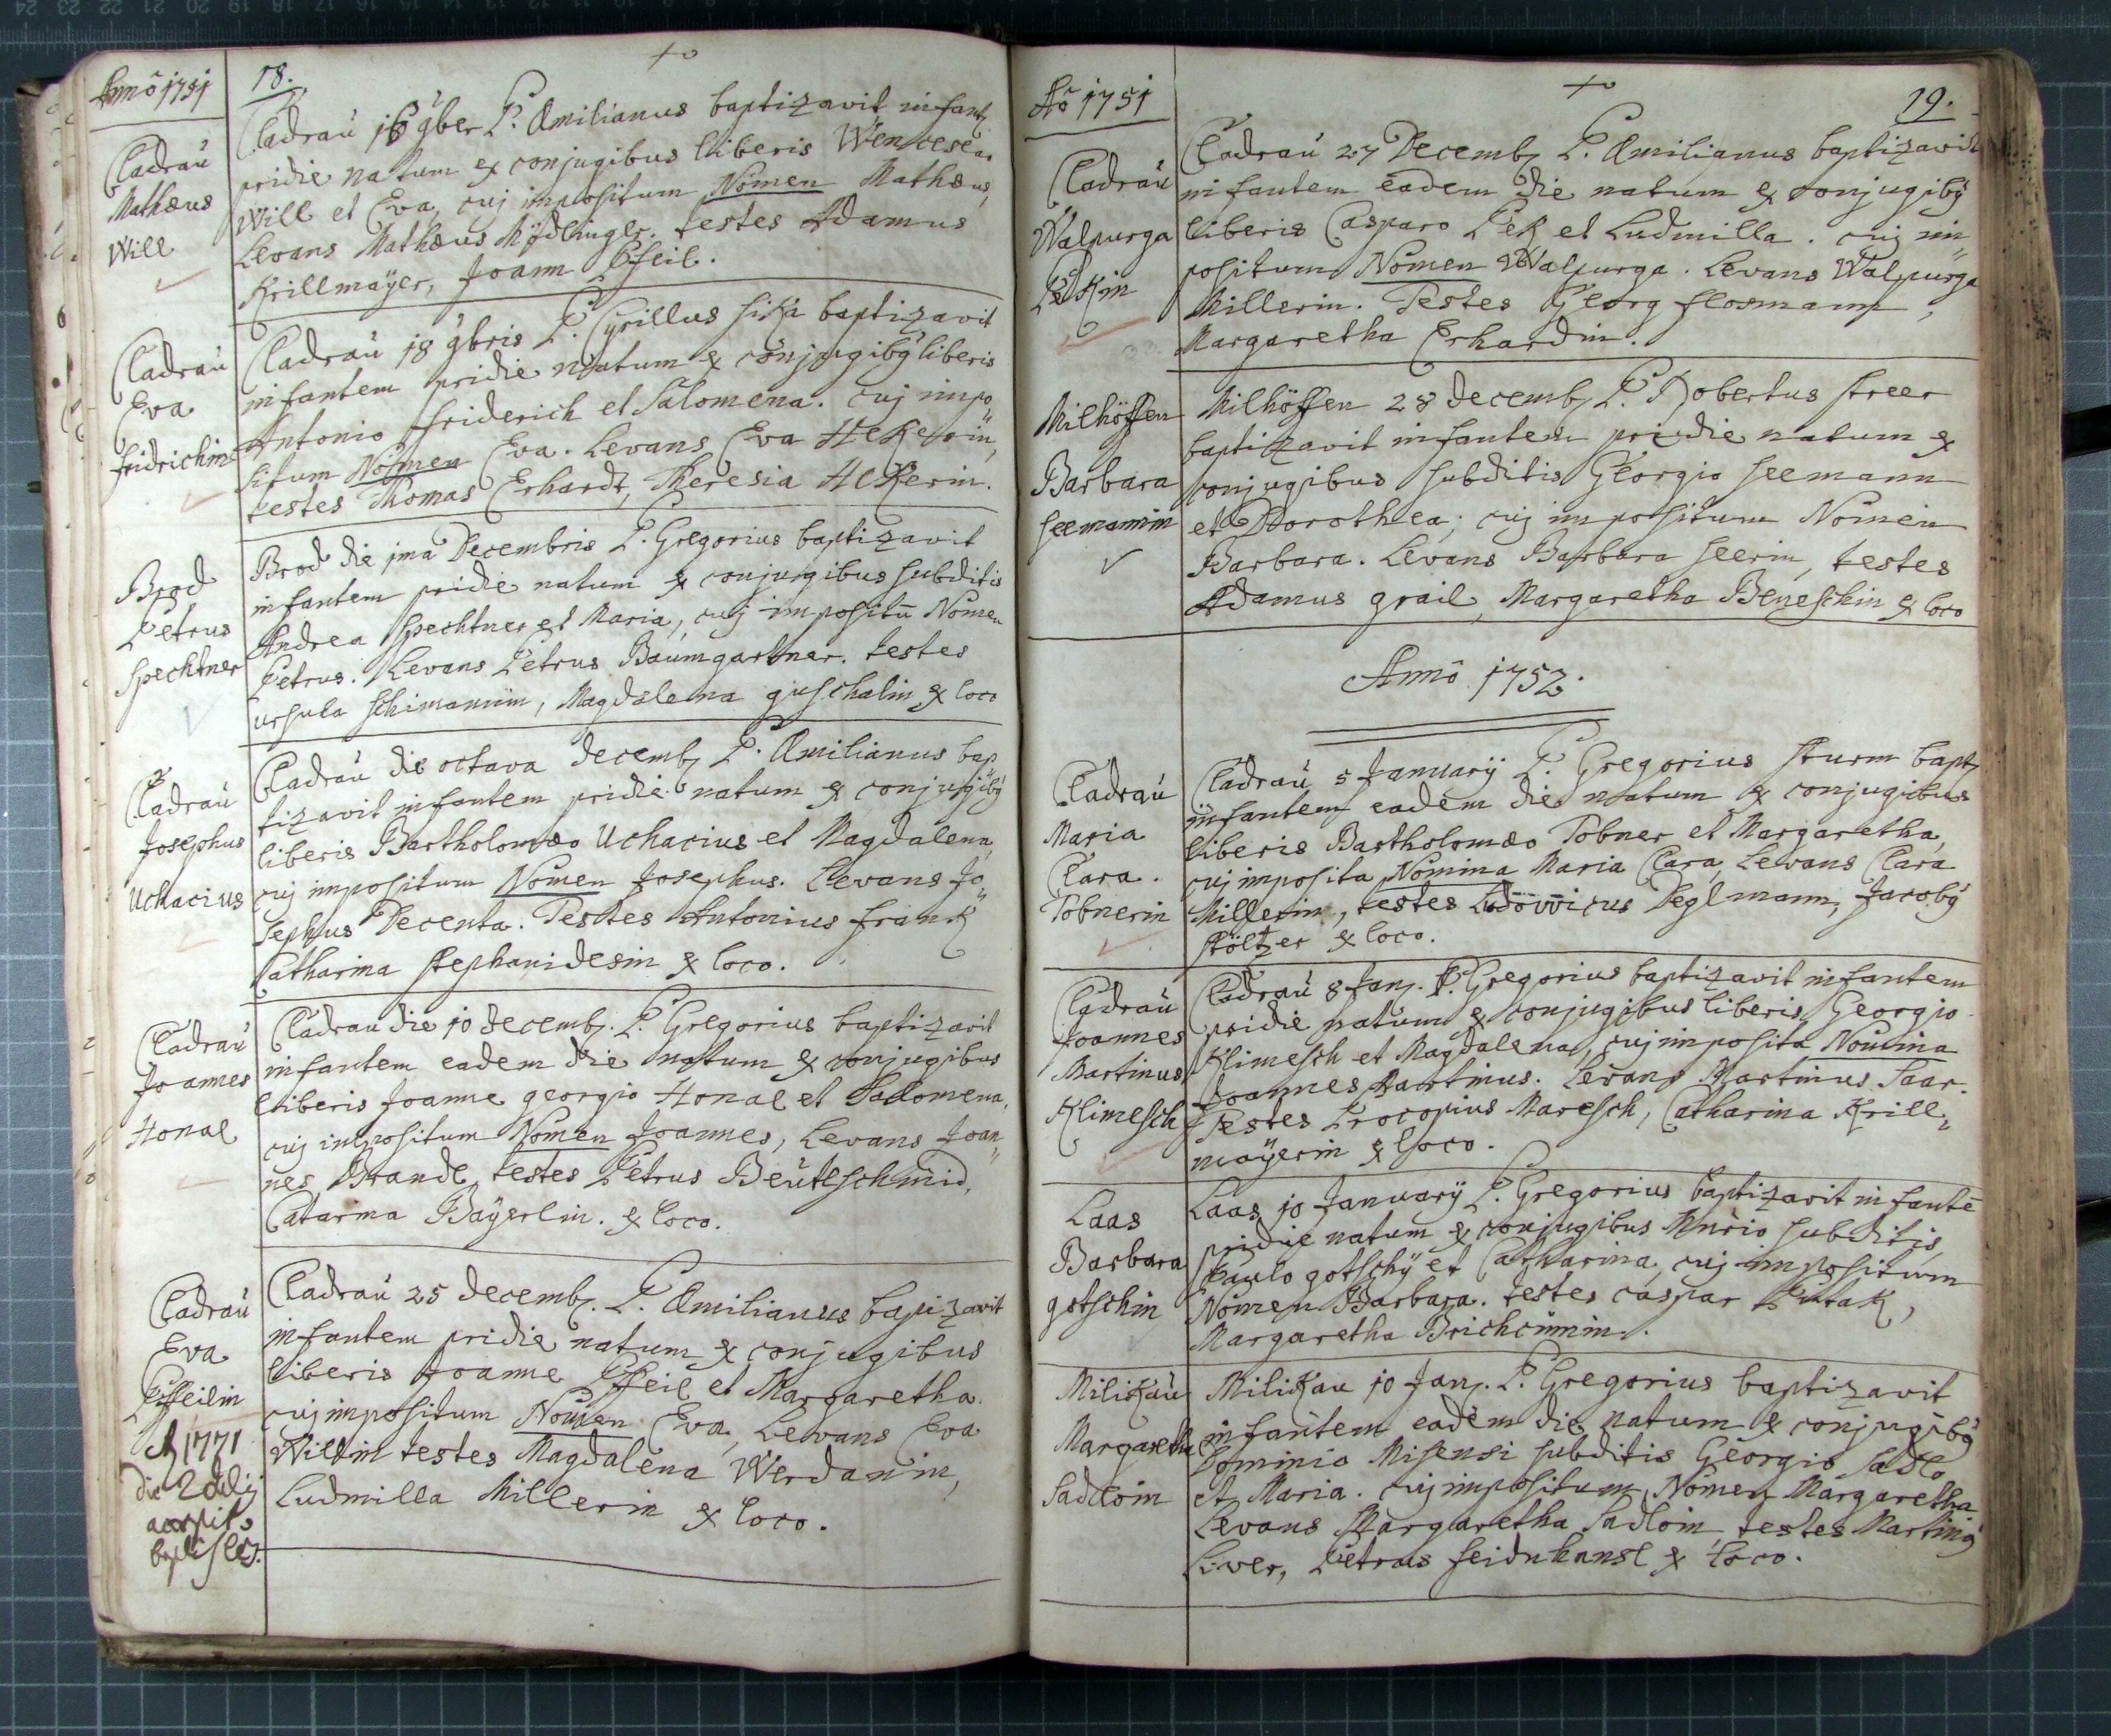 Anno 1751
18.
Cladrau
Mathæus
Will
Cladrau 16 9ber P. Æmilianus baptizavit infant,
pridie natum ex conjugibus liberis Wenceslao
Will et Eva, cuj impositum Nomen Mathæus,
Levans Mathæus Mÿdlingler. testes Adamus
Krillmaÿer, Joann Pfeil.
Cladrau
Eva
fridrichin
Cladrau 18 9bris P. Cyrillus sika baptizavit
infantem pridie natum ex conjugibg liberis
Antonio friderich et Salomena. cuj impo„
situm Nomen Eva. Levans Eva Hekerin,
testes Thomas Erhardt, Theresia Hekerin.
Brod
Petrus
Spechtner
Brod die jma Decembris P. Gregorius baptizavit
infantem pridie natum ex conjugibus subditis
Andrea Spechtner et Maria, cuj impositū Nomen
Petrus. Levans Petrus Baumgartner. testes
ursula schimanin, Magdalena guschalin ex loco
Cladrau
Josephus
Uchacius
Cladrau die octava decemb, P. Æmilianus bap
tizavit infantem pridie natum ex conjugibg
liberis Bartholomæo Uchacius et Magdalena,
cuj impositum Nomen Josephus. Levans Jo„
sephus Decenta. Testes Antonius frank
Catharina stephanidesin ex loco.
Cladrau
Joannes
Honal
Cladrau die 10 decemb. P. Gregorius baptizavit
infantem eadem die natum ex conjugibus
liberis Joanne georgio Honal et Salomena,
cuj impositum Nomen Joannes, Levans Joan„
nes Brandl, testes Petrus Beutlschmid,
Catarina Baÿerlin. ex loco.
Cladrau
Eva
Pfeilin
A 1771
die 2 Julij
accepit
baptisles.
Cladrau 25 decemb. P. Æmilianus bapizavit
infantem pridie natum ex conjugibus
liberis Joanne Pfeil et Margaretha.
cuj impositum Nomen Eva, Levans Eva
Willin testes Magdalena Werdanin,
Ludmilla Millerin ex loco.
Aō 1751
19.
Cladrau
Walpurga
Pekin
Cladrau 27 Decemb, P. Æmilianus baptizavit
infantem eadem die natum ex conjugibg
liberis Casparo Pek et Ludmilla. cuj im„
positum Nomen Walpurga. Levans Walpurga
Millerin. Testes Georg flosmann,
Margaretha Erhardin.
Milhöffen
Barbara
seemanin
Milhöffen 28 decemb, P. Robertus streer
baptizavit infantem pridie natum ex
conjugibus subditis Georgio seemann
et Dorothea; cuj impositum Nomen
Barbara. Levans Barbara seerin, testes
Adamus grail, Margaretha Beneschin ex loco
Anno 1752.
Cladrau
Maria
Clara.
Tobnerin
Cladrau 5 Januarÿ P. Gregorius sturm bapt,
infantem eadem die natum ex conjugibus
liberis Bartholomæo Tobner et Margaretha,
cuj imposita Nomina Maria Clara, Levans Clara
Millerin, testes Ludovicus Peglmann, Jacobg
stöltzer ex loco.
Cladrau
Joannes
Martinus
Klimesch
Cladrau 8 Jan. P. Gregorius baptizavit infantem
pridie natum ex conjugibus liberis Georgio
Klimesch et Magdalena, cuj imposita Nomina
Joannes Martinus. Levans Martinus Saar.
Testes Procopius Maresch, Catharina Krill„
mayerin ex loco.
Laas
Barbara
gotschin
Laas 10 Januarÿ P. Gregorius baptizavit infantē
pridie natum ex conjugibus subditis
Paulo gotschÿ et Catharina, cuj impositum
Nomen Barbara. testes caspar Putak,
Margaretha Brichcinin.
Milikau
Margaretha
Sadloin
Milikau 10 Jan. P. Gregorius baptizavit
infantem eadem die natum ex conjugibg
Dominio Misensi subditis Georgio Sadlo
et Maria. cuj impositum Nomen Margaretha
Levans Margaretha Sadloin, testes Marting
Liver, Petrus seidnhansl ex loco.